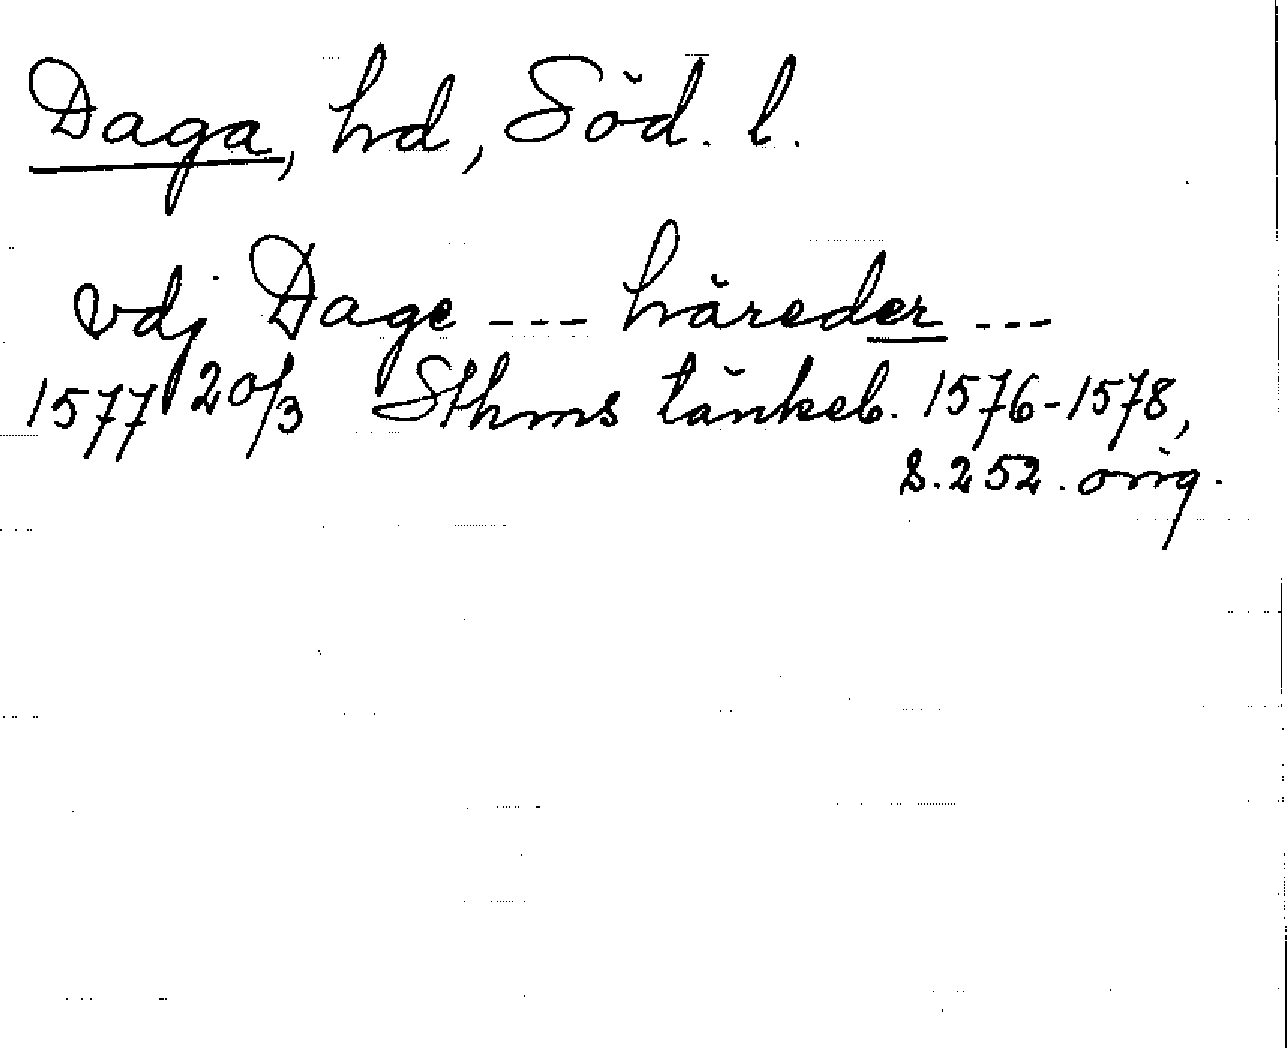 Daga, hd, Söd. l.
vdj Dage --- häreder ---
1577 20/3 Sthms tänkeb. 1576-1578,
s. 252. orig.